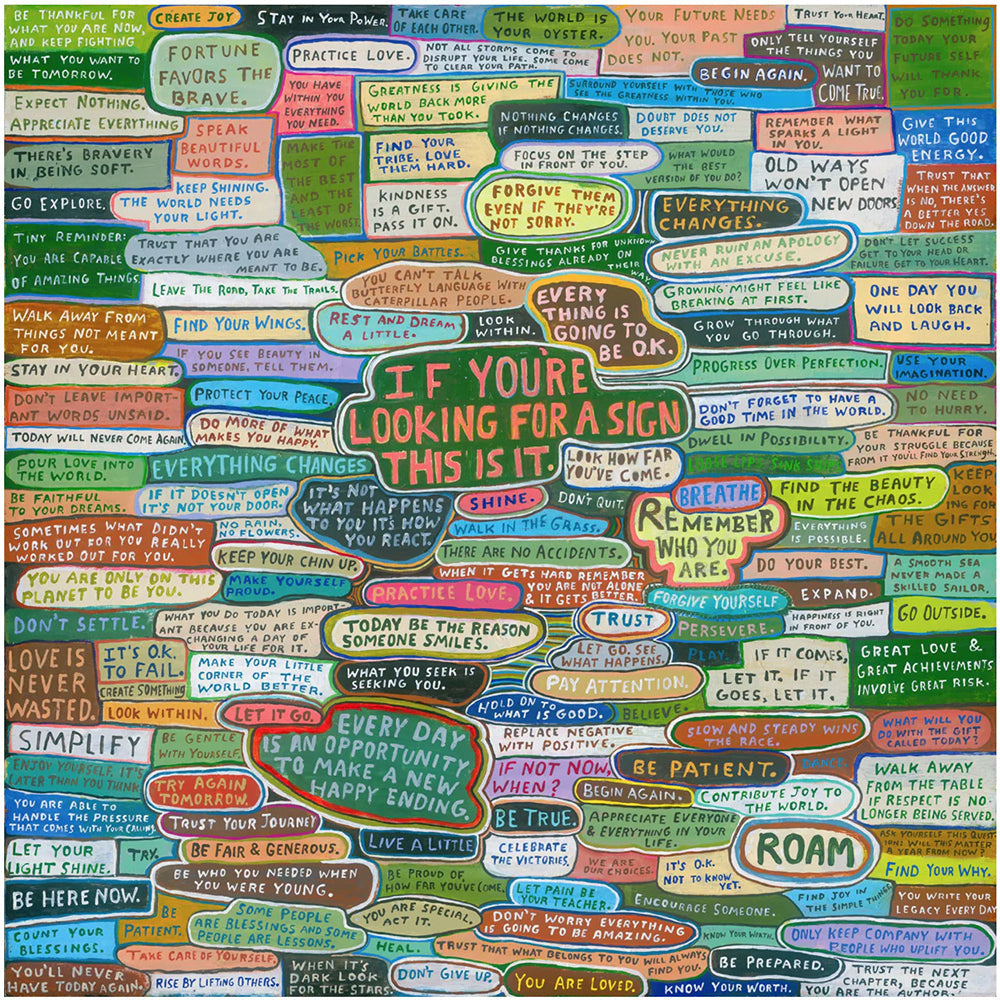 BE THANKFUL FOR
WHAT YOU ARE NOW,
AND KEEP FIGHTING
WHAT YOU WANT TO
BE TOMORROW.
CREATE JOY
STAY IN YOUR POWER.
TAKE CARE
OF EACH OTHER.
THE WORLD IS
YOUR OYSTER.
YOUR FUTURE NEEDS
YOU. YOUR PAST
DOES NOT.
TRUST YOUR HEART.
DO SOMETHING
TODAY YOUR
FUTURE SELF
WILL THANK
YOU FOR.
FORTUNE
FAVORS THE
BRAVE.
PRACTICE LOVE.
NOT ALL STORMS COME TO
DISRUPT YOUR LIFE. SOME COME
TO CLEAR YOUR PATH.
ONLY TELL YOURSELF
THE THINGS YOU
WANT TO
COME TRUE.
BEGIN AGAIN.
EXPECT NOTHING.
APPRECIATE EVERYTHING
YOU HAVE
WITHIN YOU
EVERYTHING
YOU NEED.
GREATNESS IS GIVING THE
WORLD BACK MORE
THAN YOU TOOK.
SURROUND YOURSELF WITH THOSE WHO
SEE THE GREATNESS WITHIN YOU.
SPEAK
BEAUTIFUL
WORDS.
NOTHING CHANGES
IF NOTHING CHANGES.
DOUBT DOES NOT
DESERVE YOU.
REMEMBER WHAT
SPARKS A LIGHT
IN YOU.
GIVE THIS
WORLD GOOD
ENERGY.
THERE'S BRAVERY
IN BEING SOFT.
MAKE THE
MOST OF
THE BEST
AND THE
LEAST OF
THE WORST.
FIND YOUR
TRIBE. LOVE
THEM HARD.
FOCUS ON THE STEP
IN FRONT OF YOU.
WHAT WOULD
THE BEST
VERSION OF YOU DO?
OLD WAYS
WON'T OPEN
NEW DOORS.
TRUST THAT
WHEN THE ANSWER
IS NO, THERE'S
A BETTER YES
DOWN THE ROAD.
GO EXPLORE.
KEEP SHINING.
THE WORLD NEEDS
YOUR LIGHT.
KINDNESS
IS A GIFT.
PASS IT ON.
FORGIVE THEM
EVEN IF THEY'RE
NOT SORRY.
EVERYTHING
CHANGES.
TINY REMINDER:
YOU ARE CAPABLE
OF AMAZING THINGS.
TRUST THAT YOU ARE
EXACTLY WHERE YOU ARE
MEANT TO BE.
PICK YOUR BATTLES.
GIVE THANKS FOR UNKNOWN
BLESSINGS ALREADY ON
THEIR WAY.
NEVER RUIN AN APOLOGY
WITH AN EXCUSE.
DON'T LET SUCCESS
GET TO YOUR HEAD OR
FAILURE GET TO YOUR HEART.
LEAVE THE ROAD, TAKE THE TRAILS.
YOU CAN'T TALK
BUTTERFLY LANGUAGE WITH
CATERPILLAR PEOPLE.
EVERY
THING IS
GOING TO
BE O.K.
GROWING MIGHT FEEL LIKE
BREAKING AT FIRST.
ONE DAY YOU
WILL LOOK BACK
AND LAUGH.
WALK AWAY FROM
THINGS NOT MEANT
FOR YOU.
FIND YOUR WINGS.
REST AND DREAM
A LITTLE.
LOOK
WITHIN.
GROW THROUGH WHAT
YOU GO THROUGH.
STAY IN YOUR HEART.
IF YOU SEE BEAUTY IN
SOMEONE, TELL THEM.
IF YOU'RE
LOOKING FOR A SIGN
THIS IS IT.
PROGRESS OVER PERFECTION.
USE YOUR
IMAGINATION.
DON'T LEAVE IMPORT-
ANT WORDS UNSAID.
PROTECT YOUR PEACE.
DON'T FORGET TO HAVE A
GOOD TIME IN THE WORLD.
NO NEED
TO HURRY.
TODAY WILL NEVER COME AGAIN.
DO MORE OF WHAT
MAKES YOU HAPPY.
DWELL IN POSSIBILITY.
BE THANKFUL FOR
YOUR STRUGGLE BECAUSE
FROM IT YOU'LL FIND YOUR STRENGTH.
POUR LOVE INTO
THE WORLD.
EVERYTHING CHANGES
LOOK HOW FAR
YOU'VE COME.
LOOSE LIPS SINK SHIPS.
BE FAITHFUL
TO YOUR DREAMS.
IF IT DOESN'T OPEN
IT'S NOT YOUR DOOR.
IT'S NOT
WHAT HAPPENS
TO YOU IT'S HOW
YOU REACT.
SHINE.
DON'T QUIT.
BREATHE
FIND THE BEAUTY
IN THE CHAOS.
KEEP
LOOK
ING FOR
THE GIFTS
ALL AROUND YOU
SOMETIMES WHAT DIDN'T
WORK OUT FOR YOU REALLY
WORKED OUT FOR YOU.
NO RAIN,
NO FLOWERS.
WALK IN THE GRASS.
REMEMBER
WHO YOU
ARE.
EVERYTHING
IS POSSIBLE.
KEEP YOUR CHIN UP.
THERE ARE NO ACCIDENTS.
DO YOUR BEST.
A SMOOTH SEA
NEVER MADE A
SKILLED SAILOR.
YOU ARE ONLY ON THIS
PLANET TO BE YOU.
MAKE YOURSELF
PROUD.
PRACTICE LOVE.
WHEN IT GETS HARD REMEMBER
YOU ARE NOT ALONE
& IT GETS BETTER.
FORGIVE YOURSELF
EXPAND.
DON'T SETTLE.
WHAT YOU DO TODAY IS IMPORT-
ANT BECAUSE YOU ARE EX-
CHANGING A DAY OF
YOUR LIFE FOR IT.
TODAY BE THE REASON
SOMEONE SMILES.
TRUST
PERSEVERE.
HAPPINESS IS RIGHT
IN FRONT OF YOU.
GO OUTSIDE.
LOVE IS
NEVER
WASTED.
IT'S O.K.
TO FAIL.
CREATE SOMETHING
MAKE YOUR LITTLE
CORNER OF THE
WORLD BETTER.
WHAT YOU SEEK IS
SEEKING YOU.
LET GO. SEE
WHAT HAPPENS.
PLAY.
IF IT COMES,
LET IT. IF IT
GOES, LET IT.
GREAT LOVE &
GREAT ACHIEVEMENTS
INVOLVE GREAT RISK.
PAY ATTENTION.
LOOK WITHIN.
LET IT GO.
HOLD ON TO
WHAT IS GOOD.
BELIEVE.
SIMPLIFY
BE GENTLE
WITH YOURSELF.
EVERY DAY
IS AN OPPORTUNITY
TO MAKE A NEW
HAPPY ENDING.
REPLACE NEGATIVE
WITH POSITIVE.
SLOW AND STEADY WINS
THE RACE.
WHAT WILL YOU
DO WITH THE GIFT
CALLED TODAY?
ENJOY YOURSELF, IT'S
LATER THAN YOU THINK.
TRY AGAIN
TOMORROW.
IF NOT NOW,
WHEN?
BE PATIENT.
DANCE.
WALK AWAY
FROM THE TABLE
IF RESPECT IS NO-
LONGER BEING SERVED.
YOU ARE ABLE TO
HANDLE THE PRESSURE
THAT COMES WITH YOUR CALLING.
TRUST YOUR JOURNEY
BE TRUE.
BEGIN AGAIN.
CONTRIBUTE JOY TO
THE WORLD.
APPRECIATE EVERYONE
& EVERYTHING IN YOUR
LIFE.
ROAM
ASK YOURSELF THIS QUEST
ION: WILL THIS MATTER
A YEAR FROM NOW?
LET YOUR
LIGHT SHINE.
TRY.
BE FAIR & GENEROUS.
LIVE A LITTLE
CELEBRATE
THE VICTORIES.
WE ARE
OUR CHOICES.
IT'S O.K.
NOT TO KNOW
YET.
FIND YOUR WHY.
BE HERE NOW.
BE WHO YOU NEEDED WHEN
YOU WERE YOUNG.
BE PROUD OF
HOW FAR YOU'VE COME.
LET PAIN BE
YOUR TEACHER.
ENCOURAGE SOMEONE.
FIND JOY IN
THE SIMPLE THINGS
YOU WRITE YOUR
LEGACY EVERY DAY
COUNT YOUR
BLESSINGS.
BE
PATIENT.
SOME PEOPLE
ARE BLESSINGS AND SOME
PEOPLE ARE LESSONS.
YOU ARE SPECIAL.
ACT IT.
DON'T WORRY EVERYTHING
IS GOING TO BE AMAZING.
KNOW YOUR WORTH.
ONLY KEEP COMPANY WITH
PEOPLE WHO UPLIFT YOU.
TAKE CARE OF YOURSELF.
HEAL.
TRUST THAT WHAT BELONGS TO YOU WILL ALWAYS
FIND YOU.
BE PREPARED.
YOU'LL NEVER
HAVE TODAY AGAIN.
RISE BY LIFTING OTHERS.
WHEN IT'S
DARK LOOK
FOR THE STARS.
DON'T GIVE UP.
YOU ARE LOVED.
KNOW YOUR WORTH.
TRUST THE NEXT
CHAPTER, BECAUSE
YOU ARE THE AUTHOR.